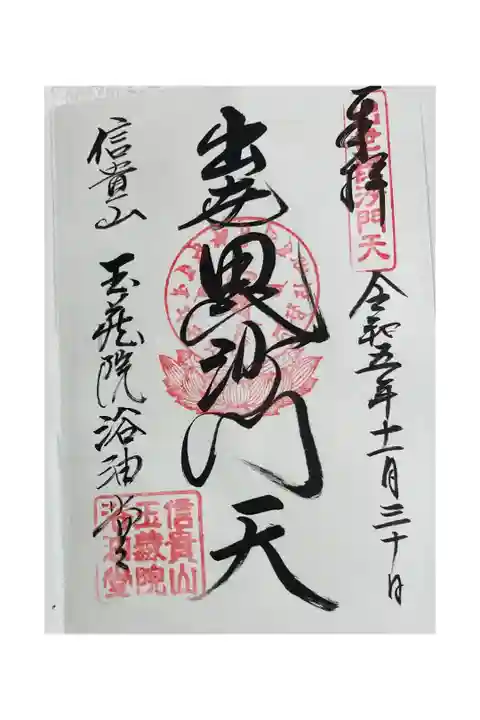 奉拝
出世毘沙門天
令和五年十一月三十日
出世毘沙門天
信貴山 玉蔵院浴油堂
信貴山
玉蔵院
浴油堂